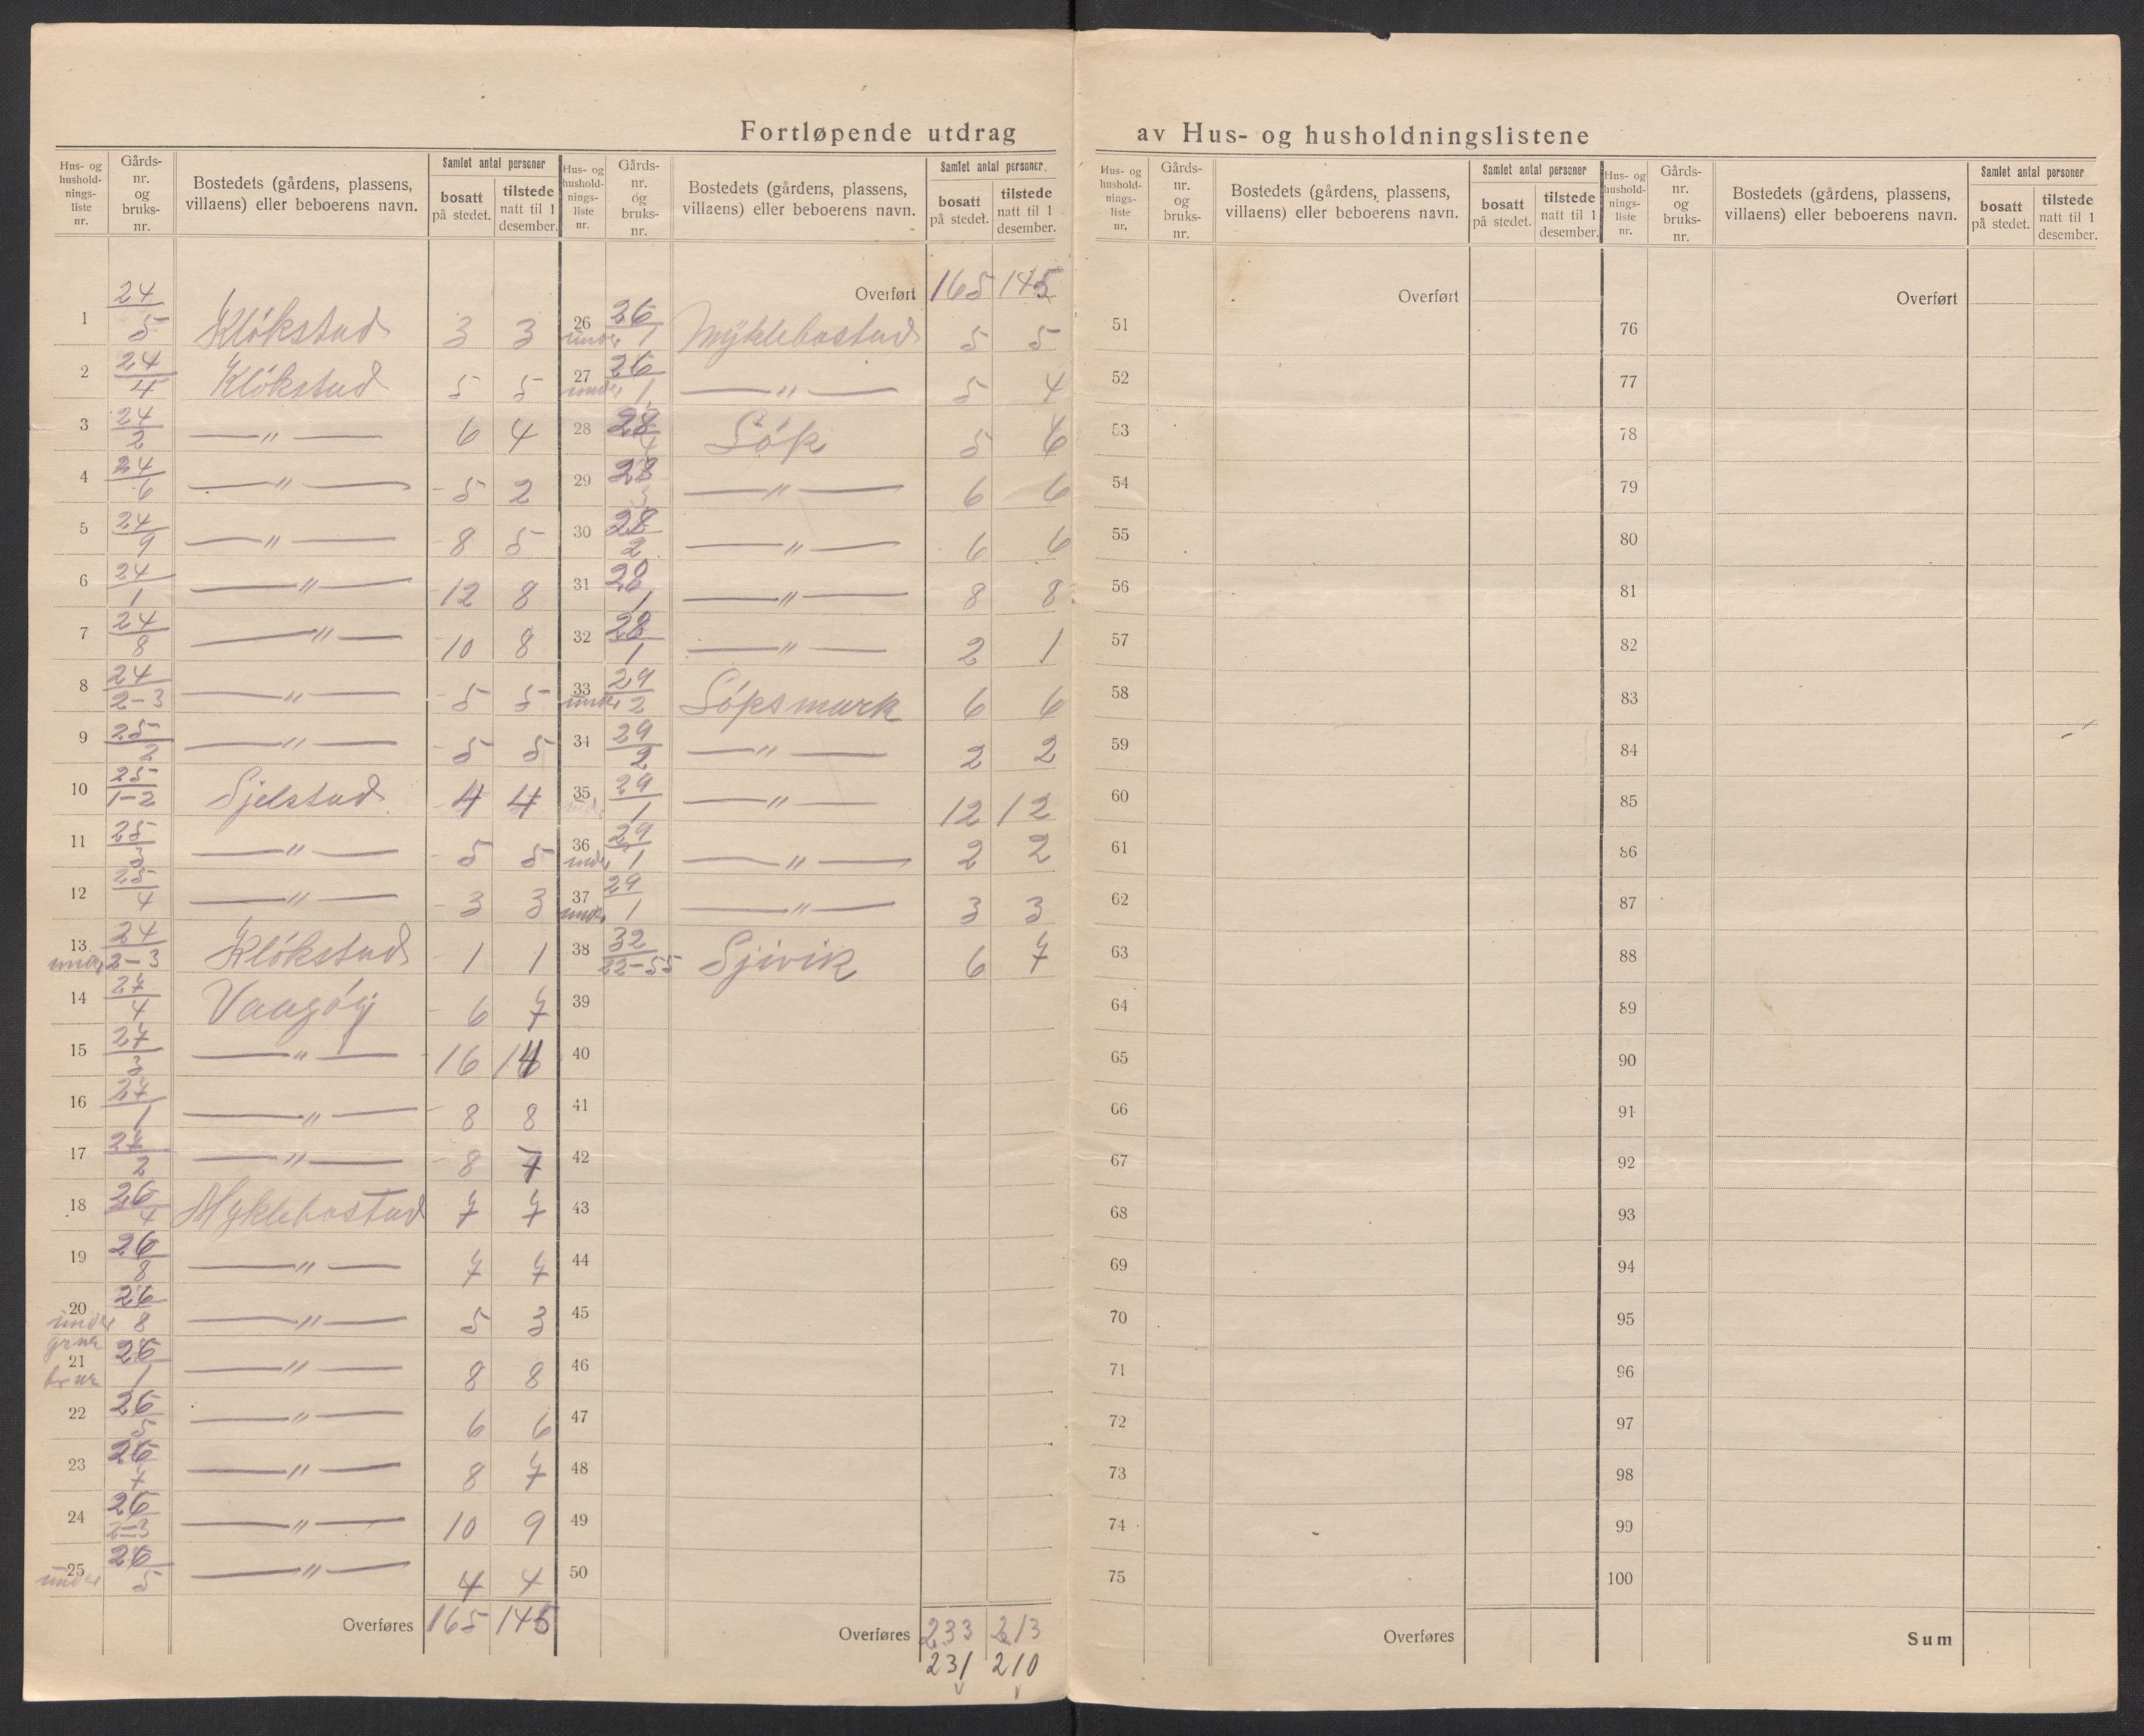 Fortløpende utdrag av Hus- og husholdningslistene
Hus- og hushold- nings- liste nr. | Gårds- nr. og bruks- nr. | Bostedets (gårdens, plassens, villaens) eller beboerens navn. | Samlet antal personer bosatt på stedet. | tilstede natt til 1 desember.
1 24/5 Klökstad 3 3
2 24/4 Klökstad 5 5
3 24/2 — " — 6 4
4 24/6 — " — 5 2
5 24/9 — " — 8 5
6 24/1 — " — 12 8
7 24/8 — " — 10 8
8 24/2-3 — " — 5 5
9 25/2 — " — 5 5
10 25/1-2 Sjelstad 4 4
11 25/3 — " — 5 5
12 25/4 — " — 3 3
13 under 24/2-3 Klökstad 1 1
14 27/4 Vaagöy 6 7
15 27/3 — " — 16 14
16 27/1 — " — 8 8
17 27/2 — " — 8 7
18 26/4 Myklebostad 7 7
19 26/8 — " — 7 7
20 under 26/8 — " — 5 3
grnr
21 brnr 26/1 — " — 8 8
22 26/5 — " — 6 6
23 26/7 — " — 8 7
24 26/2-3 — " — 10 9
25 under 26/5 — " — 4 4
Overføres 165 145
Hus- og hushold- nings- liste nr. | Gårds- nr. og bruks- nr. | Bostedets (gårdens, plassens, villaens) eller beboerens navn. | Samlet antal personer. bosatt på stedet. | tilstede natt til 1 desember.
Overført 165 145
26 under 26/1 Myklebostad 5 5
27 under 26/1 — " — 5 4
28 28/4 Löp 5 6
29 28/3 — " — 6 6
30 28/2 — " — 6 6
31 28/1 — " — 8 8
32 28/1 — " — 2 1
33 under 29/2 Löpsmark 6 6
34 29/2 — " — 2 2
35 29/1 — " — 12 12
36 under 29/1 — " — 2 2
37 under 29/1 — " — 3 3
38 32/22-55 Sjivik 6 7
39
40
41
42
43
44
45
46
47
48
49
50
Overføres 233 213
231 210
Hus- og hushold- nings- liste nr. | Gårds- nr. og bruks- nr. | Bostedets (gårdens, plassens, villaens) eller beboerens navn. | Samlet antal personer bosatt på stedet. | tilstede natt til 1 desember.
Overført
51
52
53
54
55
56
57
58
59
60
61
62
63
64
65
66
67
68
69
70
71
72
73
74
75
Overføres
Hus- og hushold- nings- liste nr. | Gårds- nr. og bruks- nr. | Bostedets (gårdens, plassens, villaens) eller beboerens navn. | Samlet antal personer bosatt på stedet. | tilstede natt til 1 desember.
Overført
76
77
78
79
80
81
82
83
84
85
86
87
88
89
90
91
92
93
94
95
96
97
98
99
100
Sum